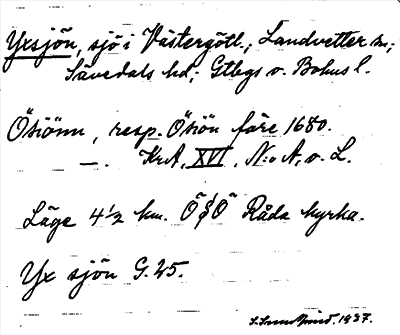 Yxsjön, sjö i Västergötl., Landvetter sn;
Sävedals hd; Gtbgs o. Bohus l.
Ösiönn, resp. Ösiön före 1680.
—. KrA, XVI, N:o A, o. L.
Läge 4½ km. Ö§Ö Råda kyrka.
Yx sjön G.25.
1937.